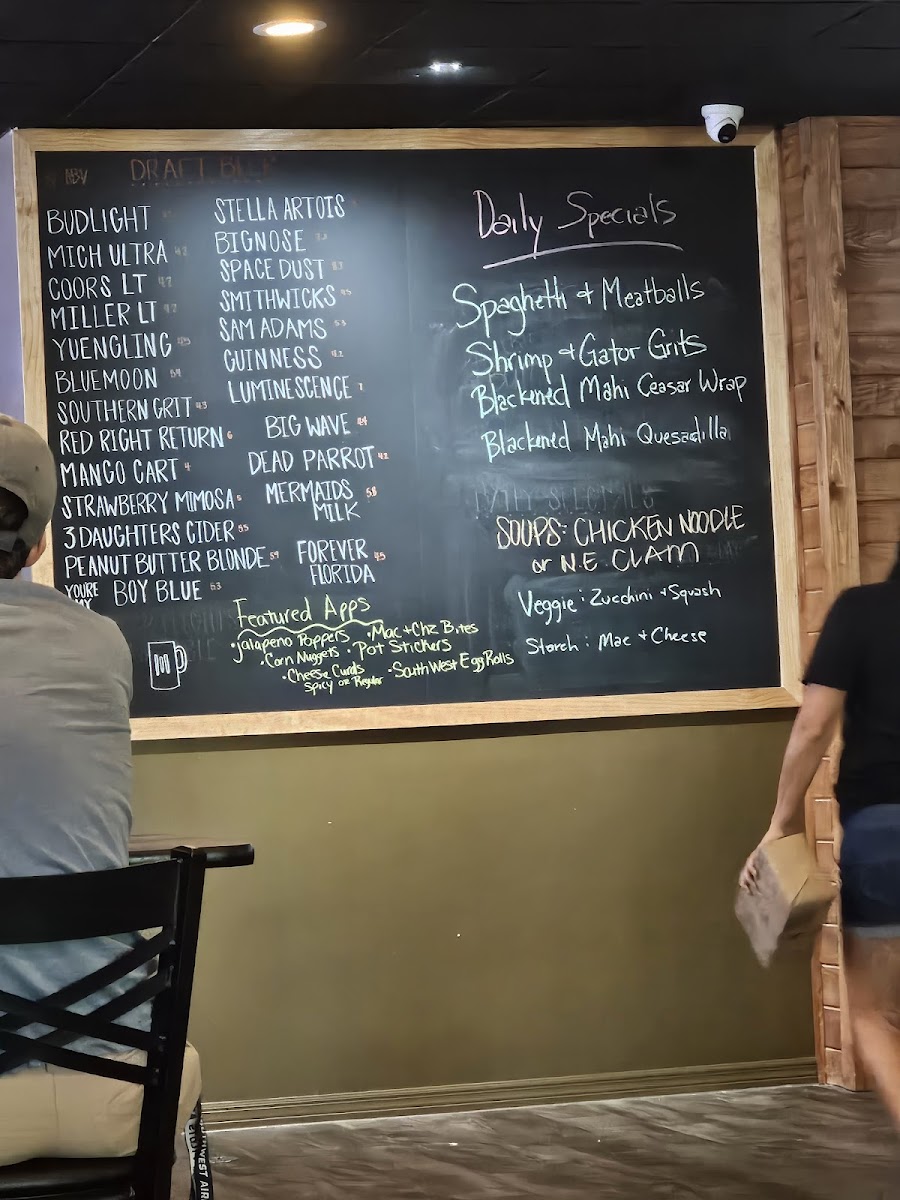 ABV DRAFT BEER
BUDLIGHT
MICH ULTRA 4.2
COORS LT 4.2
MILLER LT 4.2
YUENGLING 4.5
BLUEMOON 5.4
SOUTHERN GRIT 4.3
RED RIGHT RETURN 6
MANGO CART 4
STRAWBERRY MIMOSA 5
3 DAUGHTERS CIDER 5.5
PEANUT BUTTER BLONDE 5.9
YOU'RE
MY BOY BLUE 5.3
STELLA ARTOIS
BIGNOSE
SPACE DUST
SMITHWICKS 4.5
SAM ADAMS 5.3
GUINNESS 4.2
LUMINESCENCE 7
BIG WAVE 4.4
DEAD PARROT 4.2
MERMAIDS 5.8
MILK
FOREVER 4.5
FLORIDA
Featured Apps
• Jalapeno Poppers • Mac + Chz Bites
• Corn Nuggets • Pot Stickers
• Cheese Curds • SouthWest EggRolls
Spicy or Regular
Daily Specials
Spaghetti + Meatballs
Shrimp + Gator Grits
Blackened Mahi Ceasar Wrap
Blackened Mahi Quesadilla
DAILY SPECIALS
SOUPS: CHICKEN NOODLE
or N.E CLAM
Veggie: Zucchini + Squash
Starch: Mac + Cheese